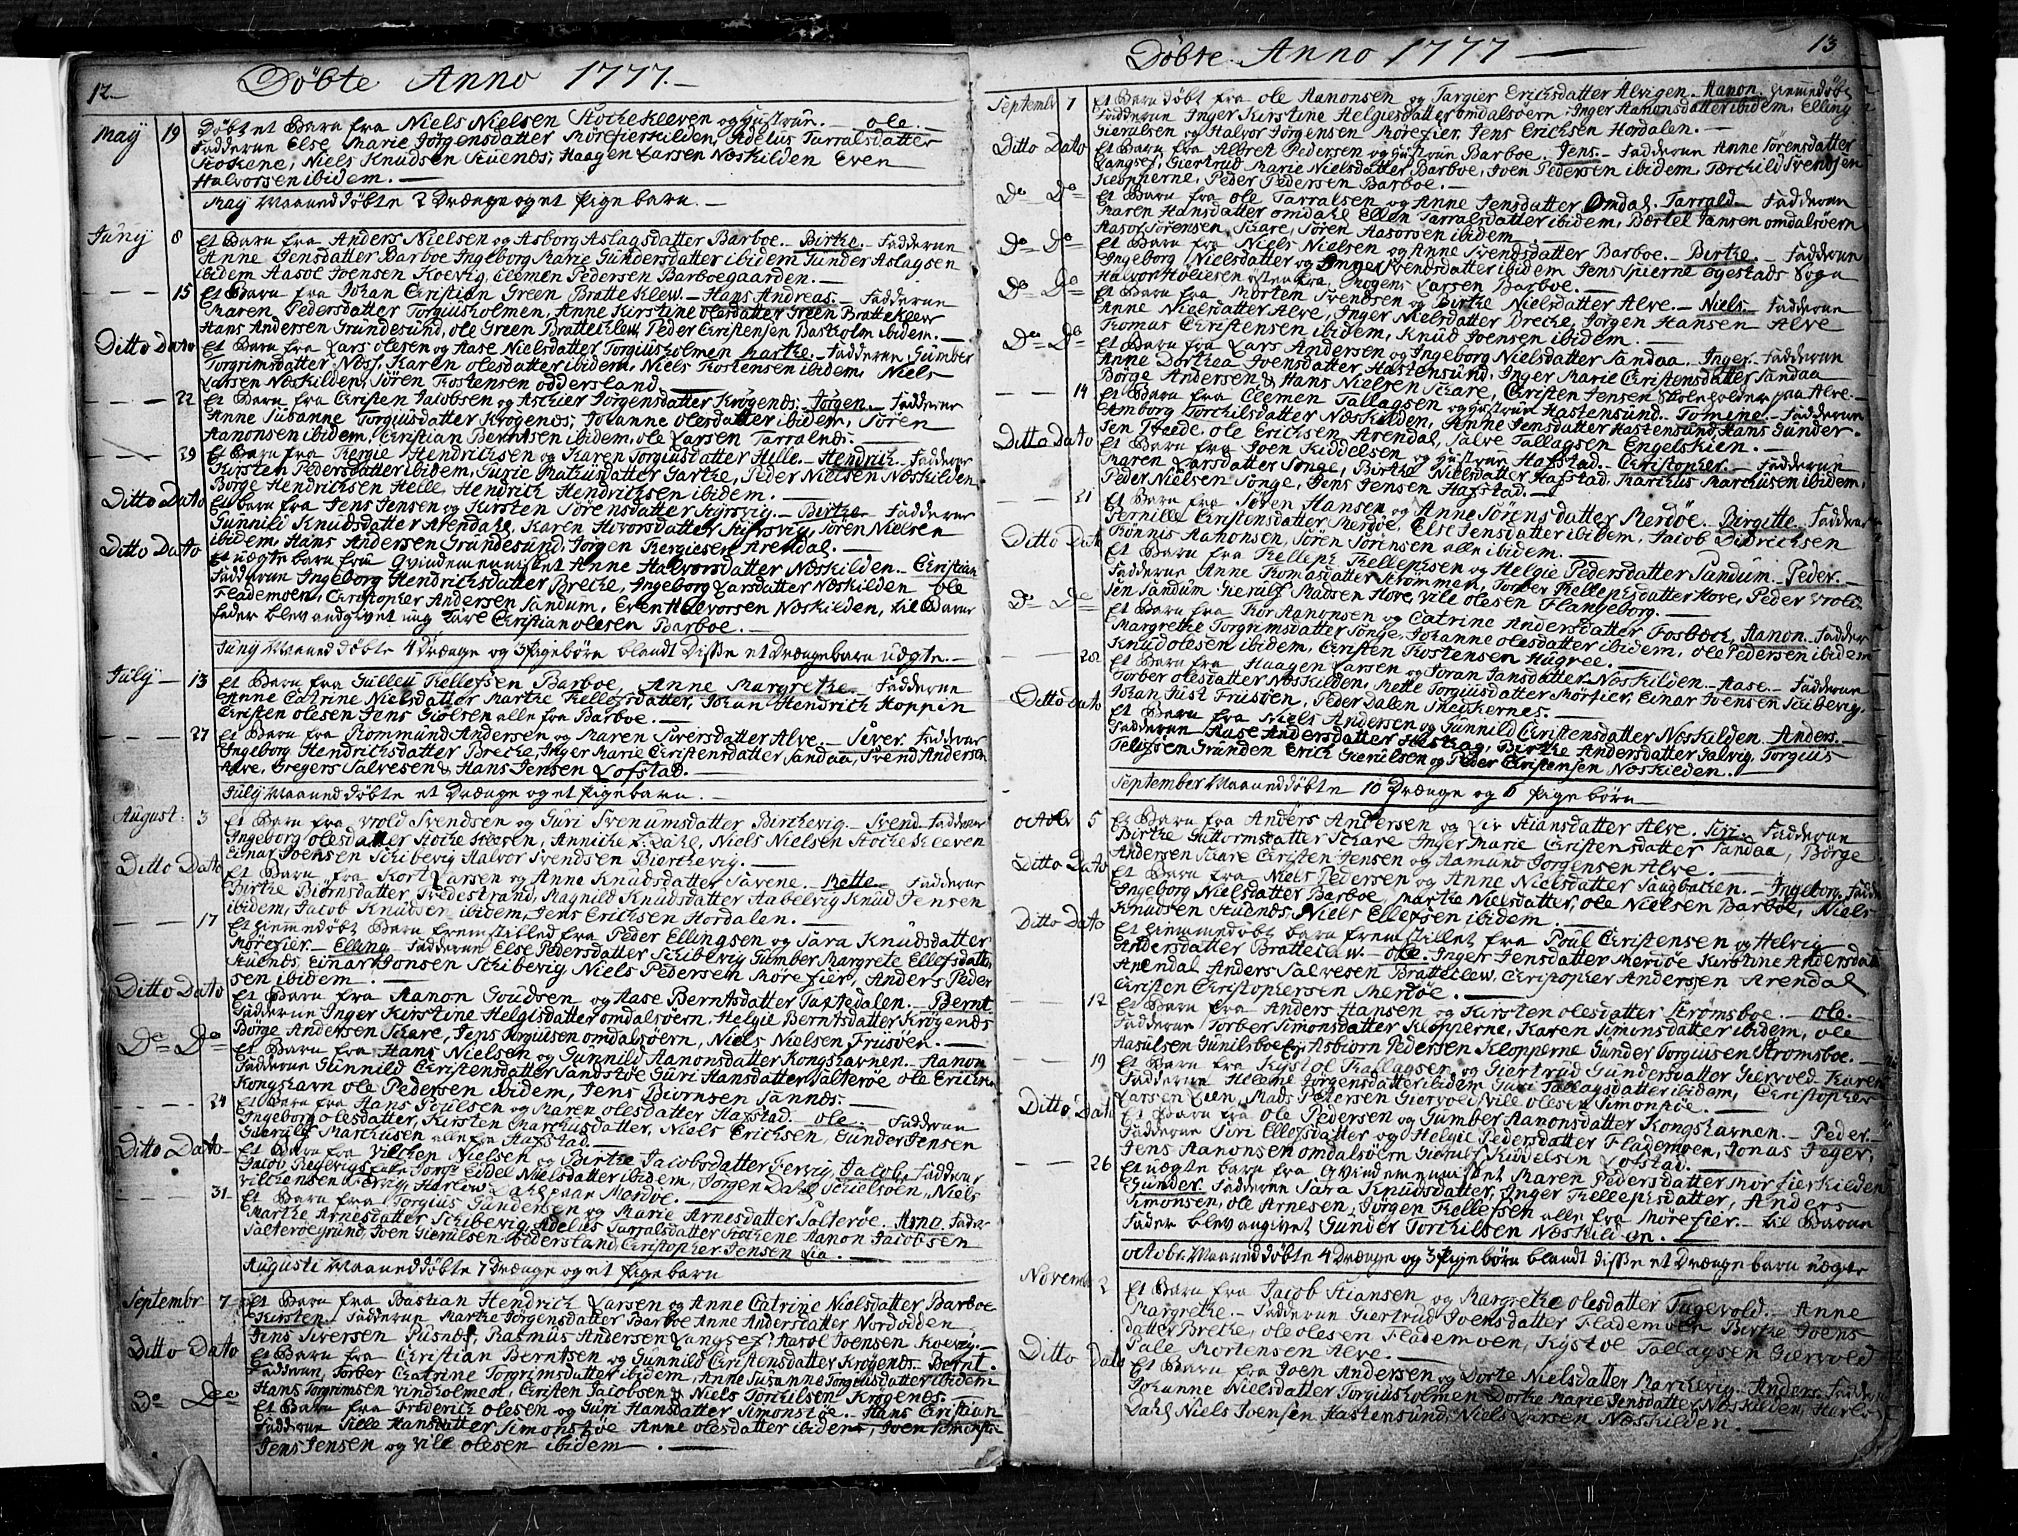 12.
Döbte Anno 1777.
May 19 Döbt et Barn fra Niels Nielsen Stockekleven og Hustrue. ole.
Fadderne Else Marie Jörgensdatter Mörefierskilden, Adelus Tarralsdatter
Stokene, Niels Knudsen Stuenes, Haagen Larsen Næskilden Even
Halvorsen ibidem.
May Maaned döbte 2 Drænge og et Pigebarn.
Juny 8 Et Barn fra Anders Nielsen og Asborg Aslagsdatter Barboe. Birthe. Fadderne
Anne Jensdatter Barboe Ingeborg Marie Gundersdatter ibidem Gunder Aslagsen
ibidem Aasol Joensen Koevig, Clemen Pedersen Barboegaarden.
15 Et Barn fra Johan Christian Green Bratteklew. Hans Andreas. Fadderne
Maren Pedersdatter Torgiusholmen, Anne Kirstine olesdatter Green Bratteklew
Hans Andersen Grundesund, ole Green Bratteklew, Peder Christensen Basholm ibidem.
Ditto Dato Et Barn fra Lars olesen og Aase Nielsdatter Torgiusholmen Marthe. Fadderne Gumber
Torgrimsdatter Næss, Karen olesdatter ibidem, Niels Torstensen ibidem, Niels
Larsen Næskilden, Sören Torstensen oddersland
22 Et Barn fra Christen Jacobsen og Aschier Jörgensdatter Krögenes. Jörgen. Fadderne
Anne Susanne Torgiusdatter Krögenes, Johanne olesdatter ibidem, Sören
Aanonsen ibidem, Christian Berntsen ibidem, ole Larsen Tarralnes.
29 Et Barn fra Tergie Hendrichsen og Karen Torgiusdatter Helle. Hendrich. Fadderne
Kirsten Pedersdatter ibidem, Gurie Mathiusdatter Garthe, Peder Nielsen Næskilden
Börge Hendrichsen Helle, Hendrich Hendrichsen ibidem.
Ditto Dato Et barn fra Jens Jensen og Kirsten Sörensdatter Songsvig. Birthe. Fadderne
Gunnild Knudsdatter Arendahl, Karen Hovorsdatter Songsvig, Sören Nielsen
ibidem, Hans Andersen Grundesund, Jörgen Tergiesen Arendal.
Ditto Dato Et uægte barn fra Qvindemennisket Anne Halvorsdatter Næskilden. Christian
Fadderne Ingeborg Hendrichsdatter Brecke, Ingeborg Larsdatter Næskilden ole
Flademoen, Christopher Andersen Sandum, Even Halvorsen Næskilden, til Barne
fader blev andgivet ung Karl Christian olesen Barboe.
Juny Maaned döbte 4 Drænge og 3 Pigebörn blandt Disse et Drængebarn uægte.
July 13 Et Barn fra Gulleu Kellefsen Barboe. Anne Margrethe. Fadderne
Anne Catrine Nielsdatter Marthe Kellefsdatter, Johan Hendrich Hoppin
Christen olesen Jens Giölsen alle fra Barboe.
27 Et Barn fra Rommund Andersen og Maren Siversdatter Alve. Siver. Fadderne
Ingeborg Hendrichsdatter Brecke, Inger Marie Christensdatter Sandaa, Svend Andersen
Alve, Gregers Salvesen & Hans Jensen Lofstad.
July Maaned döbte et Drænge og et Pigebarn.
August: 3 Et Barn fra Wrold Svendsen og Guri Svenumsdatter Birchevig. Svend. Fadderne
Ingeborg olesdatter Stockekleven, Anniche L. Dahl, Niels Nielsen Stockekleven
Einar Joensen Skibevig Halvor Svendsen Bierchevig.
Ditto Dato Et Barn fra Kort Larsen og Anne Knudsdatter Savene. Mette. Fadderne
Birthe Biörnsdatter Tvedestrand, Magnild Knudsdatter Aabelvig Knud Jensen
ibidem, Jacob Knudsen ibidem, Jens Erichsen Hordalen.
17 Et Hiemedöbt Barn fremstilled fra Peder Ellingsen og Sara Knudsdatter
Mörefier. Elling. Fadderne Else Pedersdatter Skibevig Gumber Margrete Ellefsdatter
Stuenes, Einar Jonsen Skibevig Niels Pedersen Mörefier, Anders Peder
sen ibidem.
Ditto Dato Et Barn fra Aanon Goudsen og Aase Berntsdatter Tastedalen. Bernt
Fadderne Inger Kirstine Helgisdatter omdalsöern, Helgie Berntsdatter Krögenes
Börge Andersen Skare, Jens Torgiusen omdalsöern, Niels Nielsen Frusöen.
Do Do Et Barn fra Hans Nielsen og Gunnild Aanonsdatter Kongshavnen. Aanon
Fadderne Gunnild Christensdatter Sandstöe Guri Hansdatter Salteröe ole Erichsen
Kongshavn ole Pedersen ibidem, Jens Biörnsen Sannæs.
24 Et Barn fra Hans Poulsen og Maren olesdatter Hafstad. ole. Fadderne
Ingeborg olesdatter, Kirsten Marchusdatter, Niels Erichsen, Gunder Jensen
Gierulf Marchusen alle fra Hafstad.
Ditto Dato Et Barn fra Vilchen Nielsen og Birthe Jacobsdatter Fervig, Jacob, Fadderne
Eidel Nielsdatter ibidem, Jörgen Dahl Skielsöen, Niels
Vilchensen Fervig, Harlow Dahl paa Merdöe.
31 Et Barn fra Torgius Gundersen og Marie Arnesdatter Salteröe. Arno. Fadder
Marthe Arnesdatter Skibevig Adelus Tarralsdatter Stokene Aanon Jacobsen
Salteröegrund, Joen Gierulsen oddersland, Christopher Jensen Lia.
Augusti Maaned döbte 7 Drænge og et Pigebarn
Septembr 7 Et Barn fra Bastian Hendrich Larsen og Anne Catrine Nielsdatter Barboe
Kirsten. Fadderne Marthe Jörgensdatter Barboe Anne Andersdatter Nordodden
Jens Siversen Pusnes, Rasmus Andersen Langsef, Aasol Joensen Koevig.
Ditto Dato Et Barn fra Christian Berntsen og Gunnild Christensdatter Krögenes. Bernt.
Fadderne, Torber Chatrine Torgrimsdatter ibidem, Anne Susanne Torgiusdatter ibidem
Hans Torgrimsen vindholmen, Christen Jacobsen & Niels Torchilsen Krögenes.
Do Do Et Barn fra Frederich olesen og Guri Hansdatter Simonstöe. Hans Christian
Fadderne Sille Hansdatter Simonstöe Anne olesdatter ibidem, Joen Simonstöe
Jens Jensen og Vile olesen ibidem.
13
Döbte Anno 1777
Septembr 7 Et Barn döbt fra ole Aanonsen og Targier Erichsdatter Alvigen. Aanon. Hiemedöbt
Fadderne Inger Kirstine Helgiesdatter omdalsöern, Inger Aanonsdatter ibidem, Elling
Gierulsen og Halvor Jörgensen Mörefier, Jens Erichsen Hordalen.
Ditto Dato Et Barn fra Albret Pedersen og Hustrue Barboe. Jens. Fadderne Anne Sörensdatter
Langsef, Giertrud Marie Nielsdatter Barboe, Joen Pedersen ibidem, Torchild Svendsen
Klopperne, Peder Pedersen Barboe.
Do Do Et Barn fra ole Tarralsen og Anne Jensdatter Omdal. Tarrald. Fadderne
Maren Hansdatter omdahl Ellen Tarralsdatter ibidem, Bærtel Jansen omdalsöern
Aasol Sörensen Skare, Sören Aasorsen ibidem
Do Do Et Barn fra Niels Nielsen og Anne Svendsdatter Barboe. Birthe. Fadderne
Ingeborg Nielsdatter og Inger Svendsdatter ibidem Jens Spierne Egestads Sogn
Halvor Holiesen östenfra, Mogens Larsen Barboe.
Do Do Et Barn fra Morten Svendsen og Birthe Nielsdatter Alve. Niels. Fadderne
Anne Nielsdatter Alve, Inger Nielsdatter Brecke, Jörgen Hansen Alve
Tomas Christensen ibidem, Knud Joensen ibidem.
Do Do Et Barn fra Lars Andersen og Ingeborg Nielsdatter Sandaa. Inger. Fadderne
Anne Dorthea Joensdatter Hastensund, Inger Marie Christensdatter Sandaa
Börge Andersen & Hans Nielsen Skare, Christen Jensen Skoleholder paa Alve.
14 Et Barn fra Clemen Tallagsen og Hustrue Hastensund. Tomine. Fadderne
Amborg Torchilsdatter Næskilden, Anne Jensdatter Hastensund, Hans Gunder-
sen Tvede, ole Erichsen Arendal, Salve Tallagsen Engelskien.
Ditto Dato Et Barn fra Joen Kiddelsen og Hustrue Hafstad. Christopher. Fadderne
Maren Larsdatter Songe, Birthe Nielsdatter Hafstad, Marchus Marchusen ibidem,
Peder Nielsen Songe, Jens Jensen Hafstad.
21 Et Barn fra Sören Hansen og Anne Sörensdatter Merdöe. Birgitte. Fadderne
Pernille Christensdatter Merdöe, Else Jensdatter ibidem, Jacob Didrichsen
Tönnis Aanonsen, Sören Sörensen alle ibidem.
Ditto Dato Et Barn fra Kelleph Kellephsen og Helgie Pedersdatter Sandum. Peder.
Fadderne Anne Tomasdatter Strömmen, Torber Kellephsdatter Hove, Peder Wrold-
sen Sandum Gierulf Madsen Hove, Vile olesen Flangeborg.
Do Do Et Barn fra Tor Aanonsen og Catrine Andersdatter Fosbæch, Aanon. Fadder
Margrethe Torgrimsdatter Songe, Johanne olesdatter ibidem, ole Pedersen ibidem
Knud olesen ibidem, Christen Tostensen Hugree.
28 Et Barn fra Haagen Larsen og Joran Jansdatter Næskilden. Aase. Fadderne
Torber olesdatter Næskilden, Mette Torgiusdatter Mörfier, Einar Joensen Skibevig.
Johan Just Frusöen, Peder Dalen Sneakernes.
Ditto Dato Et Barn fra Niels Andersen og Gunnild Christensdatter Næskilden. Anders.
Fadderne Aase Andersdatter Heshag, Birthe Andersdatter Salvig, Torgius
Telefsen Grunden Erich Gierulsen og Peder Christensen Næskilden.
September Maaned döbte 10 Drænge og 6 Pige börn
octobr 5 Et Barn fra Anders Andersen og Liv Stiansdatter Alve. Siri. Fadderne
Birthe Guttormsdatter Skare Inger Marie Christensdatter Sandaa, Börge
Andersen Skare Christen Jensen og Aamund Jörgensen Alve.
Ditto Dato Et Barn fra Niels Pedersen og Anne Nielsdatter Saugbacken. Ingeborg. Fadderne
Ingeborg Nielsdatter Barboe Marthe Nielsdatter, ole Nielsen Barboe, Niels
Knudsen Stuenes, Niels Ellefsen ibidem.
Ditto Dato Et Hiemmedöbt barn fremstillet fra Poul Christensen og Helvig
Andersdatter Bratteklew. ole. Inger Jensdatter Merdöe Kirstine Andersdatter
Arendal Anders Salvesen Bratteklew. Christopher Andersen Arendal
Christen Christophersen Merdöe.
12 Et Barn fra Anders Hansen og Kirsten olesdatter Strömsboe. ole.
Fadderne Torber Simonsdatter Klopperne, Karen Simonsdatter ibidem, ole
Aasulsen Gunilsboe og Asbiorn Pedersen Klopperne Gunder Torgiusen Strömsboe.
19 Et Barn fra Kystol Tallagsen og Giertrud Gundersdatter Giervold. Karen
Fadderne Helene Jörgensdatter ibidem Guri Tallagsdatter ibidem, Christopher
Larsen Lien, Mads Petersen Giervold, Vile olesen Simonstöe.
Ditto Dato Et Barn fra ole Pedersen og Gumber Aanonsdatter Kongshavnen. Peder.
Fadderne Siri Ellefsdatter og Helgie Pedersdatter Flademoen, Jonas Jeger,
Jens Aanonsen omdalsöern Gieruls Kiddelsen Lofstad.
26 Et uægte barn fra Qvindemennisket Maren Pedersdatter Mörfierskilden
Gunder. Fadderne Sara Knudsdatter, Inger Kellephsdatter, Anders
Simonsen, ole Arnesen, Jörgen Kellefsen alle fra Mörefier. til Barne
Fader blev angivet Gunder Torchilsen Næskilden.
octobr. Maaned döbte 4 Drænge og 3 Pigebörn blandt disse et Drænge barn uægte
Novembr 2 Et Barn fra Jacob Stiansen og Margrethe olesdatter Fugevold. Anne
Margrethe. Fadderne Giertrud Joensdatter Flademoen Birthe Joens
datter Brecke, ole olesen Flademoen, Kystol Tallagsen Giervold
Sale Mortensen Alve.
Ditto Dato Et Barn fra Joen Andersen og Dorte Nielsdatter Marchevig. Anders. Fadder
Johanne Nielsdatter Torgiusholmen Dorthe Marie Jensdatter Næskilden, Harlo
Dahl Niels Joensen Hastensund, Niels Larsen Næskilden.